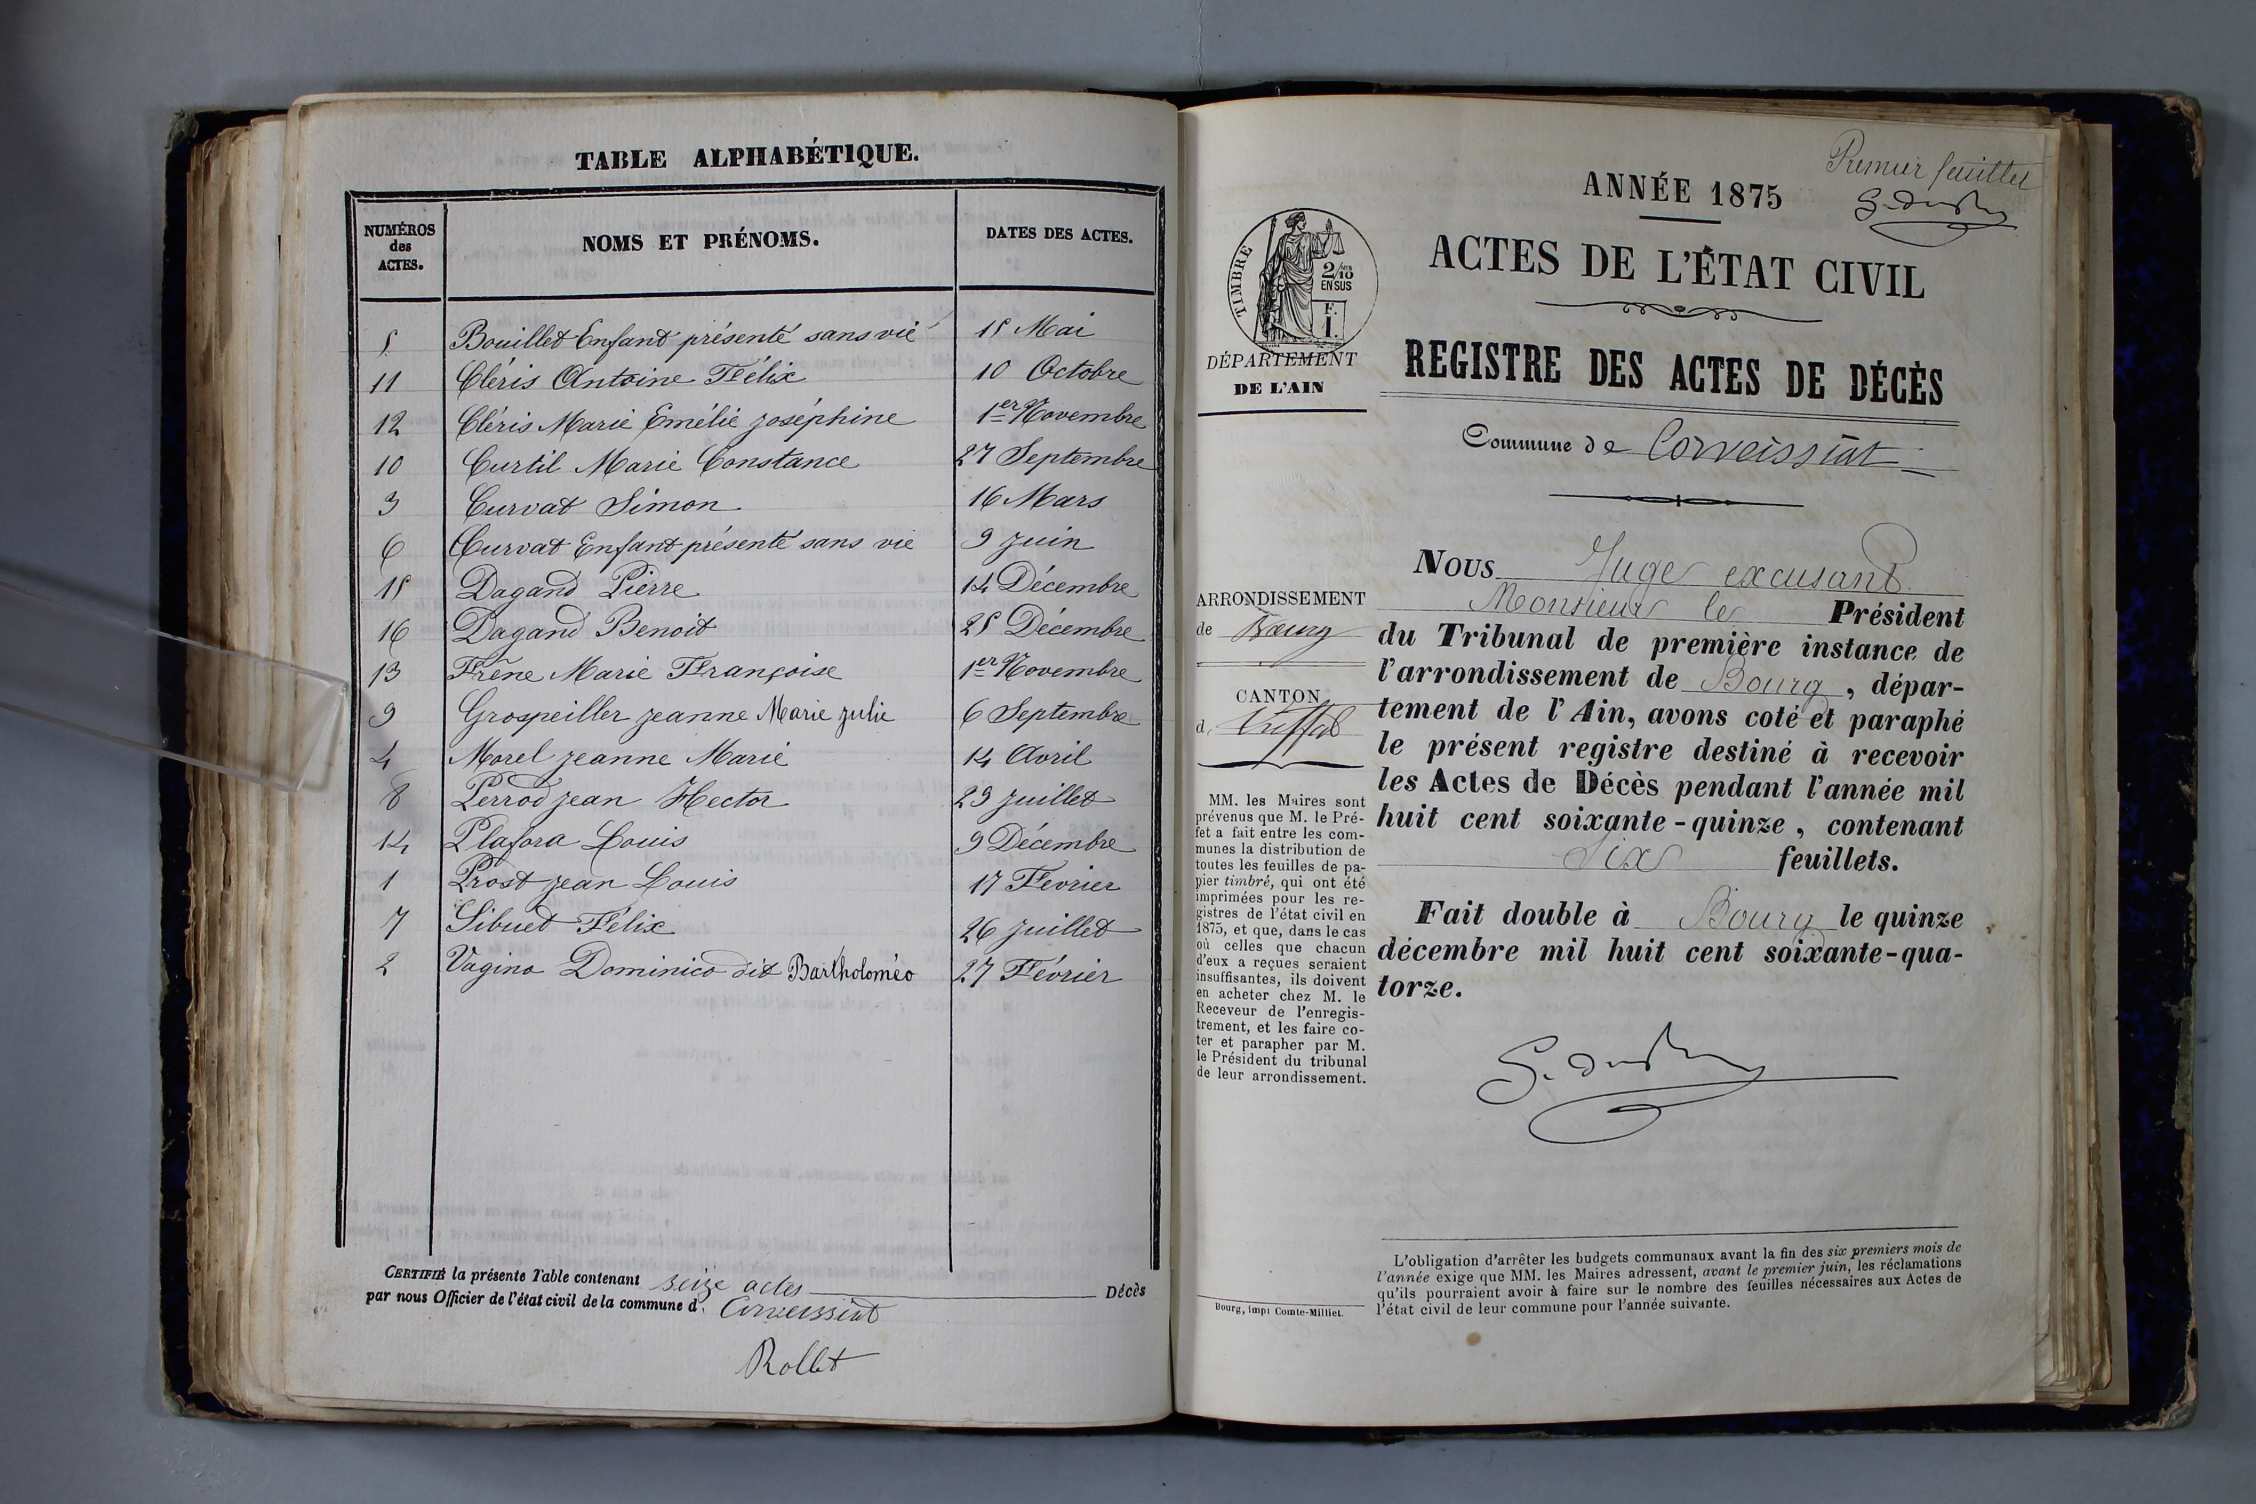 TABLE ALPHABÉTIQUE.
NUMÉROS des ACTES. NOMS ET PRÉNOMS. DATES DES ACTES.
5 Bouillet Enfant présenté sans vie 15 Mai
11 Cléris Antoine Félix 10 Octobre
12 Cléris Marie Emélie Joséphine 1er Novembre
10 Curtil Marie Constance 27 Septembre
3 Curvat Simon 16 Mars
6 Curvat Enfant présenté sans vie 9 Juin
15 Dagand Pierre 14 Décembre
16 Dagand Benoit 25 Décembre
13 Frêne Marie Françoise 1er Novembre
9 Grospeiller Jeanne Marie Julie 6 Septembre
4 Morel Jeanne Marie 14 Avril
8 Perrod Jean Hector 29 Juillet
14 Plafora Louis 9 Décembre
1 Prost Jean Louis 17 Février
7 Sibuet Félix 26 Juillet
2 Vagina Dominico dit Bartholoméo 27 Février
CERTIFIÉ la présente Table contenant seize actes Décès
par nous Officier de l'état civil de la commune d. Corveissiat
Rollet
Premier feuillet
ANNÉE 1875
ACTES DE L'ÉTAT CIVIL
REGISTRE DES ACTES DE DÉCÈS
Commune de Corveissiat
TIMBRE
2/10 EN SUS
F.
1.
DÉPARTEMENT
DE L'AIN
ARRONDISSEMENT
de Bourg
CANTON
d. Treffort
MM. les Maires sont
prévenus que M. le Pré-
fet a fait entre les com-
munes la distribution de
toutes les feuilles de pa-
pier timbré, qui ont été
imprimées pour les re-
gistres de l'état civil en
1875, et que, dans le cas
où celles que chacun
d'eux a reçues seraient
insuffisantes, ils doivent
en acheter chez M. le
Receveur de l'enregis-
trement, et les faire co-
ter et parapher par M.
le Président du tribunal
de leur arrondissement.
Bourg, impr Comte-Milliet.
NOUS Juge excusant
Monsieur le Président
du Tribunal de première instance de
l'arrondissement de Bourg, dépar-
tement de l'Ain, avons coté et paraphé
le présent registre destiné à recevoir
les Actes de Décès pendant l'année mil
huit cent soixante-quinze, contenant
Six feuillets.
Fait double à Bourg le quinze
décembre mil huit cent soixante-qua-
torze.
L'obligation d'arrêter les budgets communaux avant la fin des six premiers mois de
l'année exige que MM. les Maires adressent, avant le premier juin, les réclamations
qu'ils pourraient avoir à faire sur le nombre des feuilles nécessaires aux Actes de
l'état civil de leur commune pour l'année suivante.